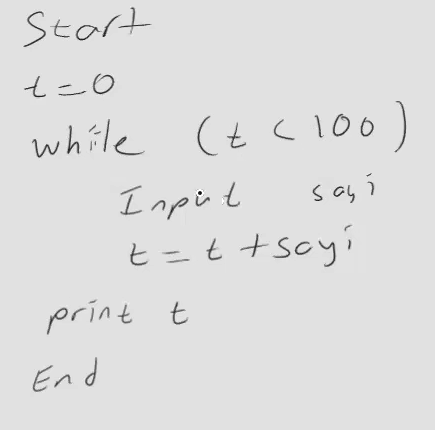 Start
t=0
while (t < 100)
Input sayi
t = t + sayi
print t
End